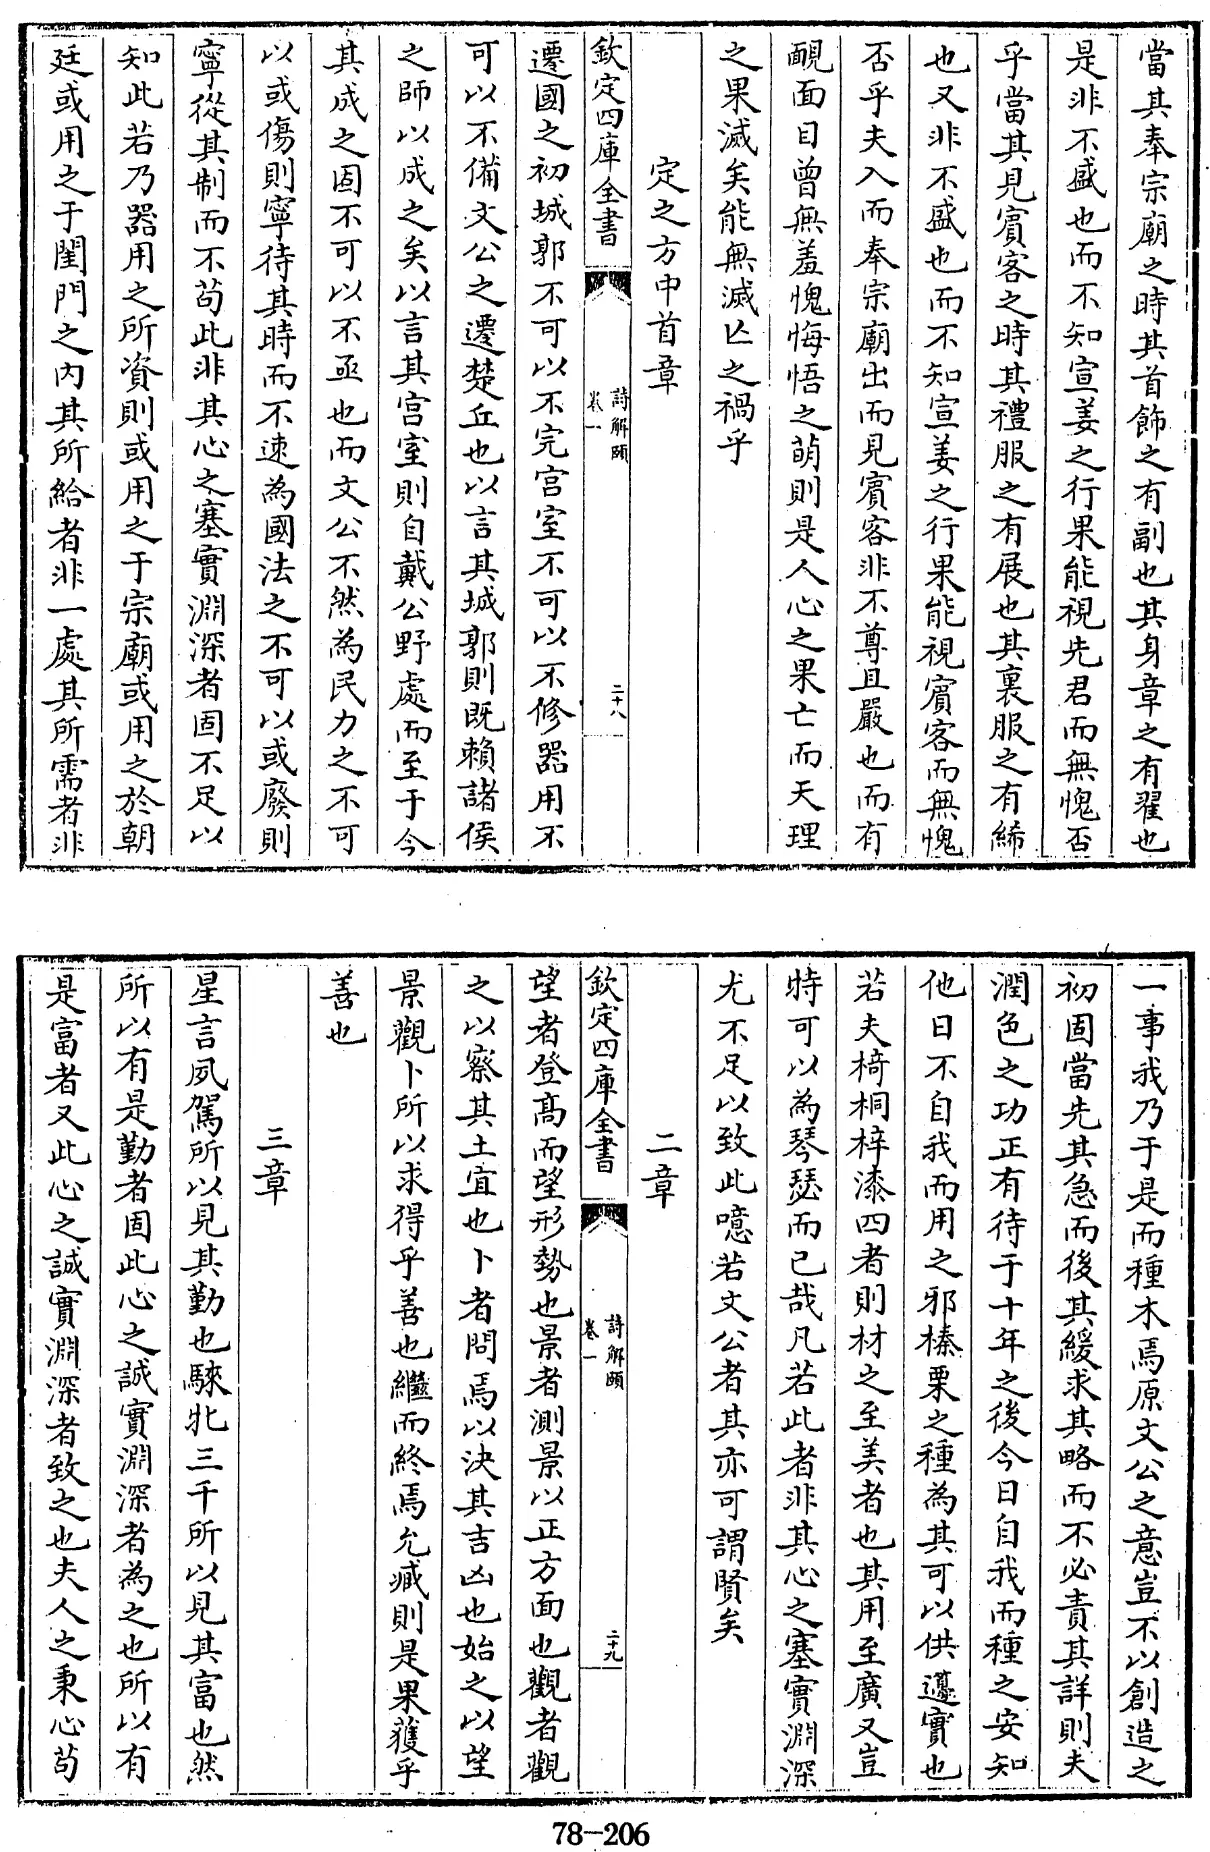 當其奉宗廟之時其首飾之有副也其身章之有翟也
是非不盛也而不知宣姜之行果能視先君而無愧否
乎當其見賓客之時其禮服之有展也其裏服之有絺
也又非不盛也而不知宣姜之行果能視賓客而無愧
否乎夫入而奉宗廟出而見賓客非不尊且嚴也而有
靦面目曾無羞愧悔悟之萌則是人心之果亡而天理
之果滅矣能無滅亾之禍乎
定之方中首章
欽定四庫全書
詩解頤
卷一
二十八
遷國之初城郭不可以不完宫室不可以不修器用不
可以不備文公之遷楚丘也以言其城郭則既賴諸侯
之師以成之矣以言其宫室則自戴公野處而至于今
其成之固不可以不亟也而文公不然為民力之不可
以或傷則寧待其時而不速為國法之不可以或廢則
寧從其制而不苟此非其心之塞實淵深者固不足以
知此若乃器用之所資則或用之于宗廟或用之於朝
廷或用之于閨門之内其所給者非一處其所需者非
一事我乃于是而種木焉原文公之意豈不以創造之
初固當先其急而後其緩求其略而不必責其詳則夫
潤色之功正有待于十年之後今日自我而種之安知
他日不自我而用之邪榛栗之種為其可以供籩實也
若夫椅桐梓漆四者則材之至美者也其用至廣又豈
特可以為琴瑟而已哉凡若此者非其心之塞實淵深
尤不足以致此噫若文公者其亦可謂賢矣
二章
欽定四庫全書
詩解頤
卷一
二十九
望者登高而望形勢也景者測景以正方面也觀者觀
之以察其土宜也卜者問焉以決其吉凶也始之以望
景觀卜所以求得乎善也繼而終焉允臧則是果獲乎
善也
三章
星言夙駕所以見其勤也騋牝三千所以見其富也然
所以有是勤者固此心之誠實淵深者為之也所以有
是富者又此心之誠實淵深者致之也夫人之秉心苟
78-206